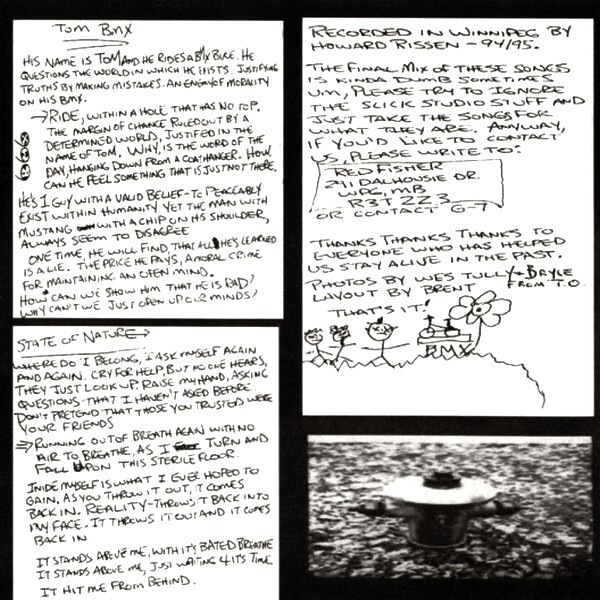 TOM BMX
HIS NAME IS TOM AND HE RIDES A BMX BIKE. HE
QUESTIONS THE WORLD IN WHICH HE EXISTS. JUSTIFYING
TRUTHS BY MAKING MISTAKES. AN ENEMY OF MORALITY
ON HIS BMX.
→ RIDE, WITHIN A HOLE THAT HAS NO TOP.
THE MARGIN OF CHANCE RULED OUT BY A
DETERMINED WORLD, JUSTIFIED IN THE
NAME OF TOM. WHY, IS THE WORD OF THE
DAY, HANGING DOWN FROM A COATHANGER. HOW,
CAN HE FEEL SOMETHING THAT IS JUST NOT THERE.
HE'S 1 GUY WITH A VALID BELIEF - TO PEACEABLY
EXIST WITHIN HUMANITY YET THE MAN WITH
MUSTANG WITH A CHIP ON HIS SHOULDER,
ALWAYS SEEM TO DISAGREE
ONE TIME, HE WILL FIND, THAT ALL HE'S LEARNED
IS A LIE. THE PRICE HE PAYS, A MORAL CRIME
FOR MAINTAINING AN OPEN MIND.
HOW CAN WE SHOW HIM THAT HE IS RAD?
WHY CAN'T WE JUST OPEN UP OUR MINDS?
STATE OF NATURE →
WHERE DO I BELONG, I ASK MYSELF AGAIN
AND AGAIN. CRY FOR HELP, BUT NO ONE HEARS,
THEY JUST LOOK UP. RAISE MY HAND, ASKING
QUESTIONS THAT I HAVEN'T ASKED BEFORE
DON'T PRETEND THAT THOSE YOU TRUSTED WERE
YOUR FRIENDS
⇒ RUNNING OUT OF BREATH AGAIN WITH NO
AIR TO BREATHE, AS I TURN AND
FALL UPON THIS STERILE FLOOR.
INIDE MYSELF IS WHAT I EVER HOPED TO
GAIN, AS YOU THROW IT OUT, IT COMES
BACK IN. REALITY - THROWS IT BACK INTO
MY FACE. IT THROWS IT OUT AND IT COMES
BACK IN
IT STANDS ABOVE ME, WITH IT'S BATED BREATHE
IT STANDS ABOVE ME, JUST WAITING 4 IT'S TIME
IT HIT ME FROM BEHIND.
RECORDED IN WINNIPEG BY
HOWARD RISSEN - 94/95.
THE FINAL MIX OF THESE SONGS
IS KINDA DUMB SOMETIMES
UM, PLEASE TRY TO IGNORE
THE SLICK STUDIO STUFF AND
JUST TAKE THE SONGS FOR
WHAT THEY ARE. ANYWAY,
IF YOU'D LIKE TO CONTACT
US, PLEASE WRITE TO:
RED FISHER
241 DALHOUSIE DR.
WPG, MB
R3T 2Z3
OR CONTACT G-7
THANKS THANKS THANKS TO
EVERYONE WHO HAS HELPED
US STAY ALIVE IN THE PAST.
PHOTOS BY WES TULLY + BRYLE
LAYOUT BY BRENT FROM T.O.
THAT'S IT!
BMX